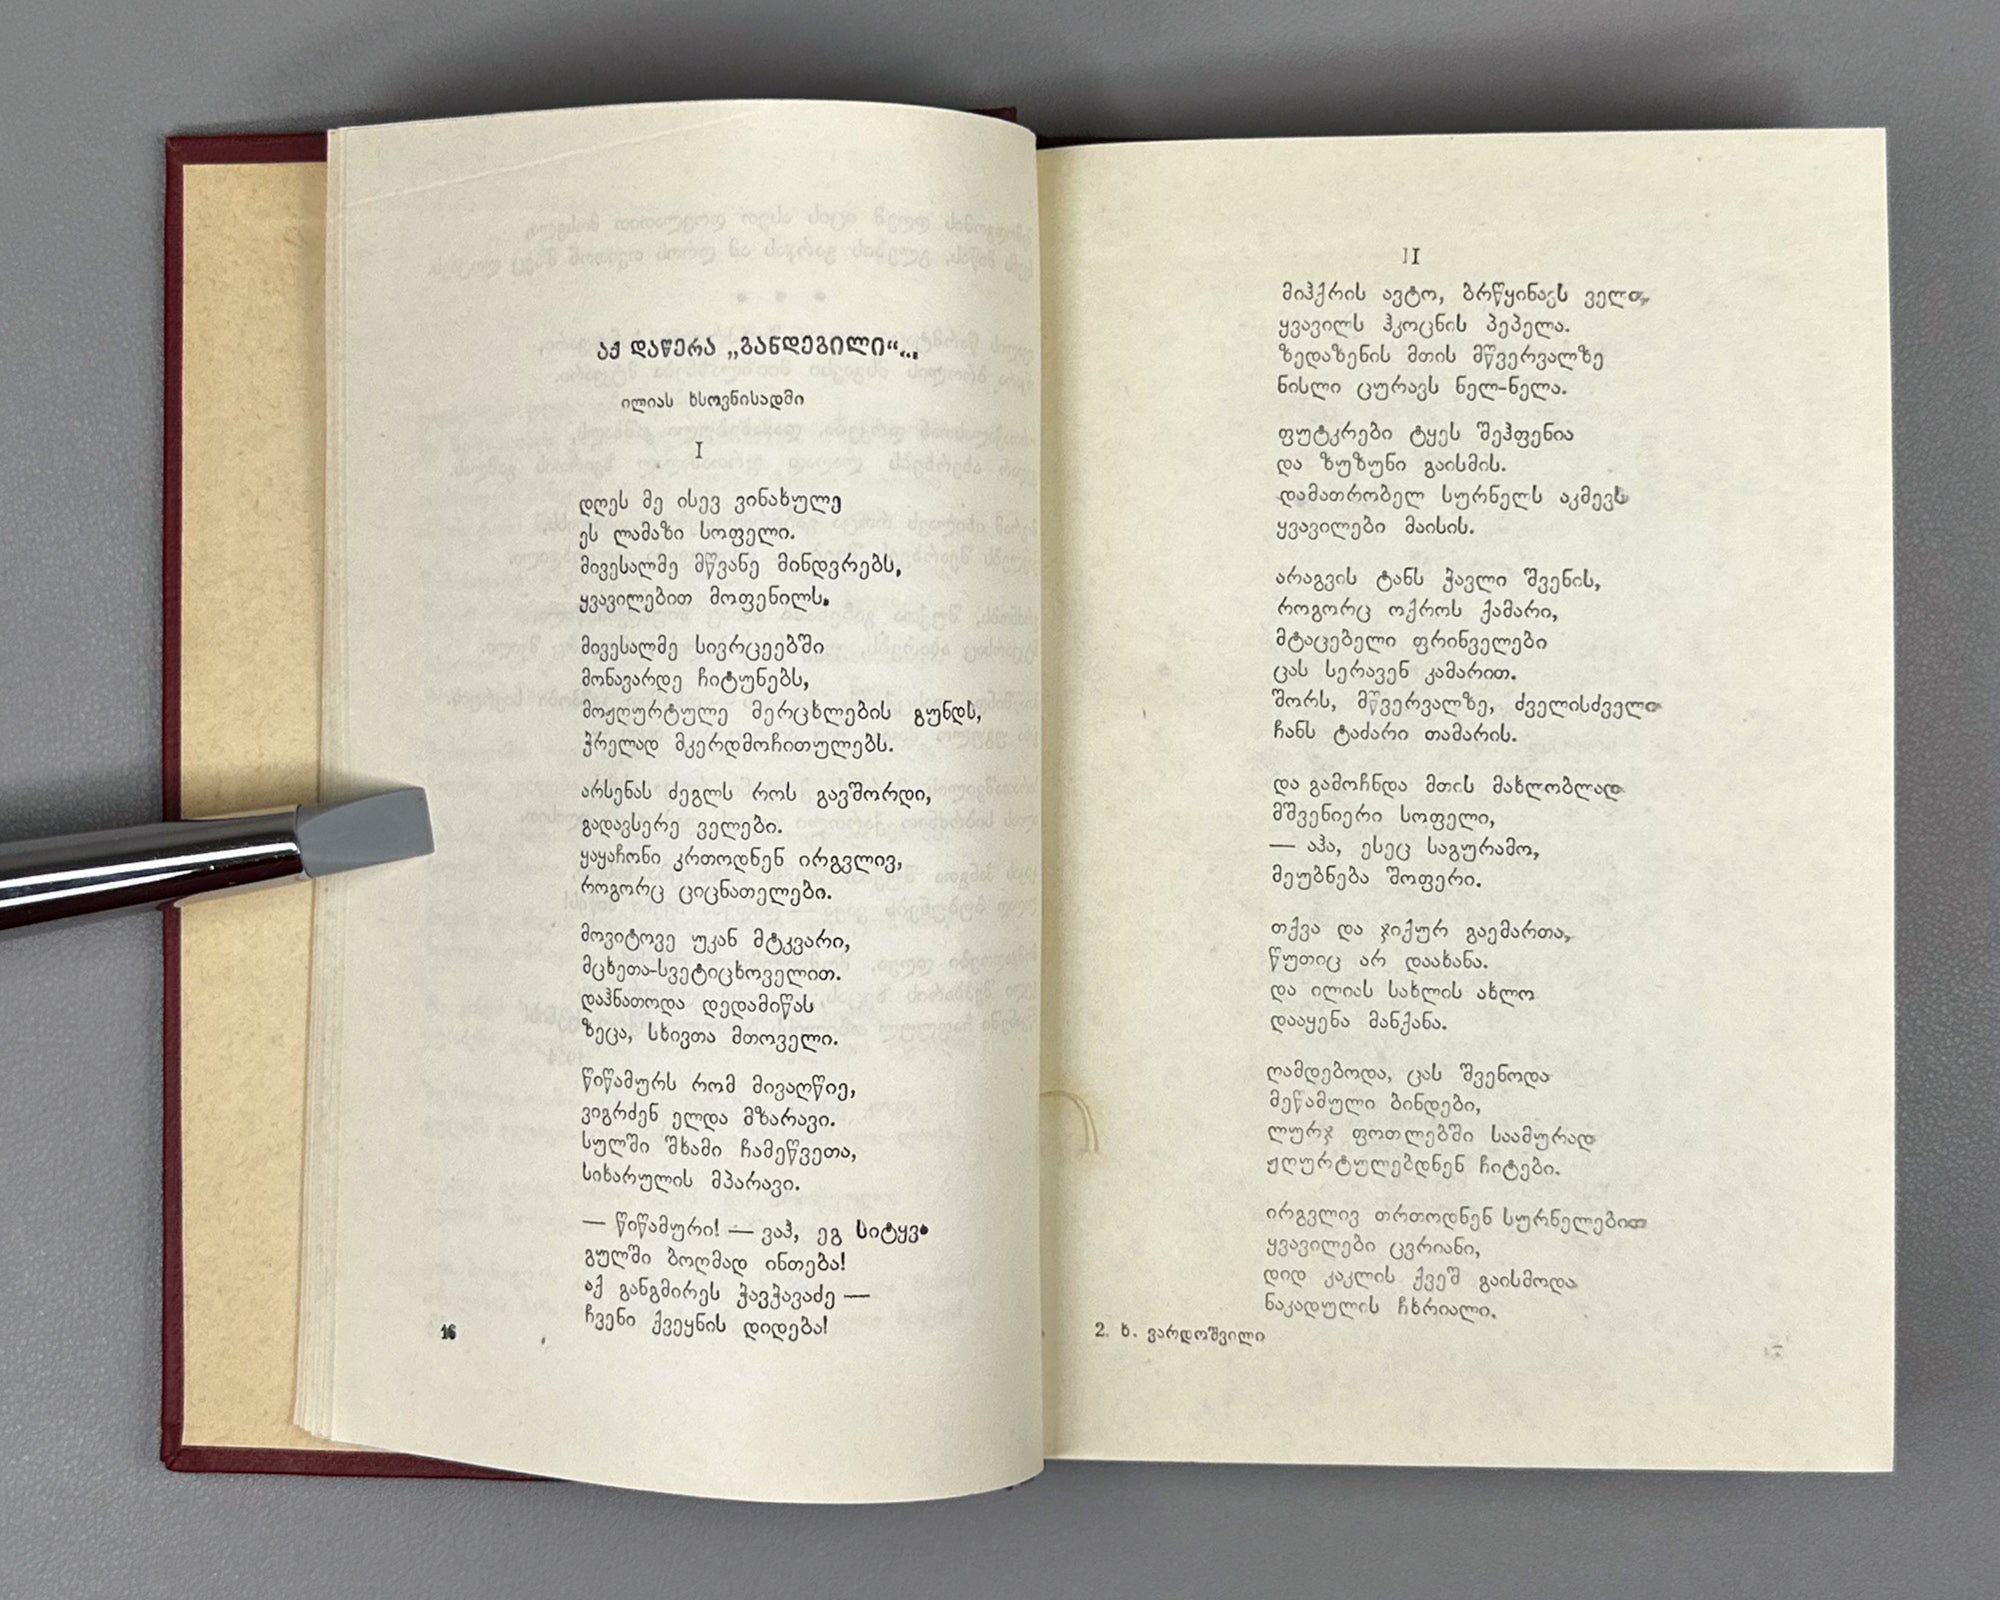 აქ დაწერა „განდეგილი“...
ილიას ხსოვნისადმი
I
დღეს მე ისევ ვინახულე
ეს ლამაზი სოფელი.
მივესალმე მწვანე მინდვრებს,
ყვავილებით მოფენილს.
მივესალმე სივრცეებში
მონავარდე ჩიტუნებს,
მოჟღურტულე მერცხლების გუნდს,
ჭრელად მკერდმოჩითულებს.
არსენას ძეგლს როს გავშორდი,
გადავსერე ველები.
ყაყაჩონი კრთოდნენ ირგვლივ,
როგორც ციცნათელები.
მოვიტოვე უკან მტკვარი,
მცხეთა-სვეტიცხოველით.
დაჰნათოდა დედამიწას
ზეცა, სხივთა მთოველი.
წიწამურს რომ მივაღწიე,
ვიგრძენ ელდა მზარავი.
სულში შხამი ჩამეწვეთა,
სიხარულის მპარავი.
— წიწამური! — ვაჰ, ეგ სიტყვა
გულში ბოღმად ინთება!
აქ განგმირეს ჭავჭავაძე —
ჩვენი ქვეყნის დიდება!
16
II
მიჰქრის ავტო, ბრწყინავს ველი,
ყვავილს ჰკოცნის პეპელა.
ზედაზენის მთის მწვერვალზე
ნისლი ცურავს ნელ-ნელა.
ფუტკრები ტყეს შეჰფენია
და ზუზუნი გაისმის.
დამათრობელ სურნელს აკმევს
ყვავილები მაისის.
არაგვის ტანს ჭავლი შვენის,
როგორც ოქროს ქამარი,
მტაცებელი ფრინველები
ცას სერავენ კამარით.
შორს, მწვერვალზე, ძველისძველი
ჩანს ტაძარი თამარის.
და გამოჩნდა მთის მახლობლად
მშვენიერი სოფელი,
— აჰა, ესეც საგურამო,
მეუბნება შოფერი.
თქვა და ჯიქურ გაემართა,
წუთიც არ დაახანა.
და ილიას სახლის ახლო
დააყენა მანქანა.
ღამდებოდა, ცას შვენოდა
მეწამული ბინდები,
ლურჯ ფოთლებში საამურად
ჟღურტულებდნენ ჩიტები.
ირგვლივ თრთოდნენ სურნელებით
ყვავილები ცვრიანი,
დიდ კაკლის ქვეშ გაისმოდა
ნაკადულის ჩხრიალი.
2. ხ. ვარდოშვილი